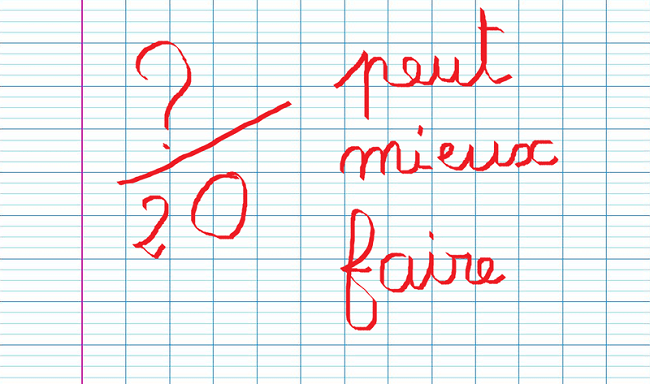 ?
20
peut
mieux
faire